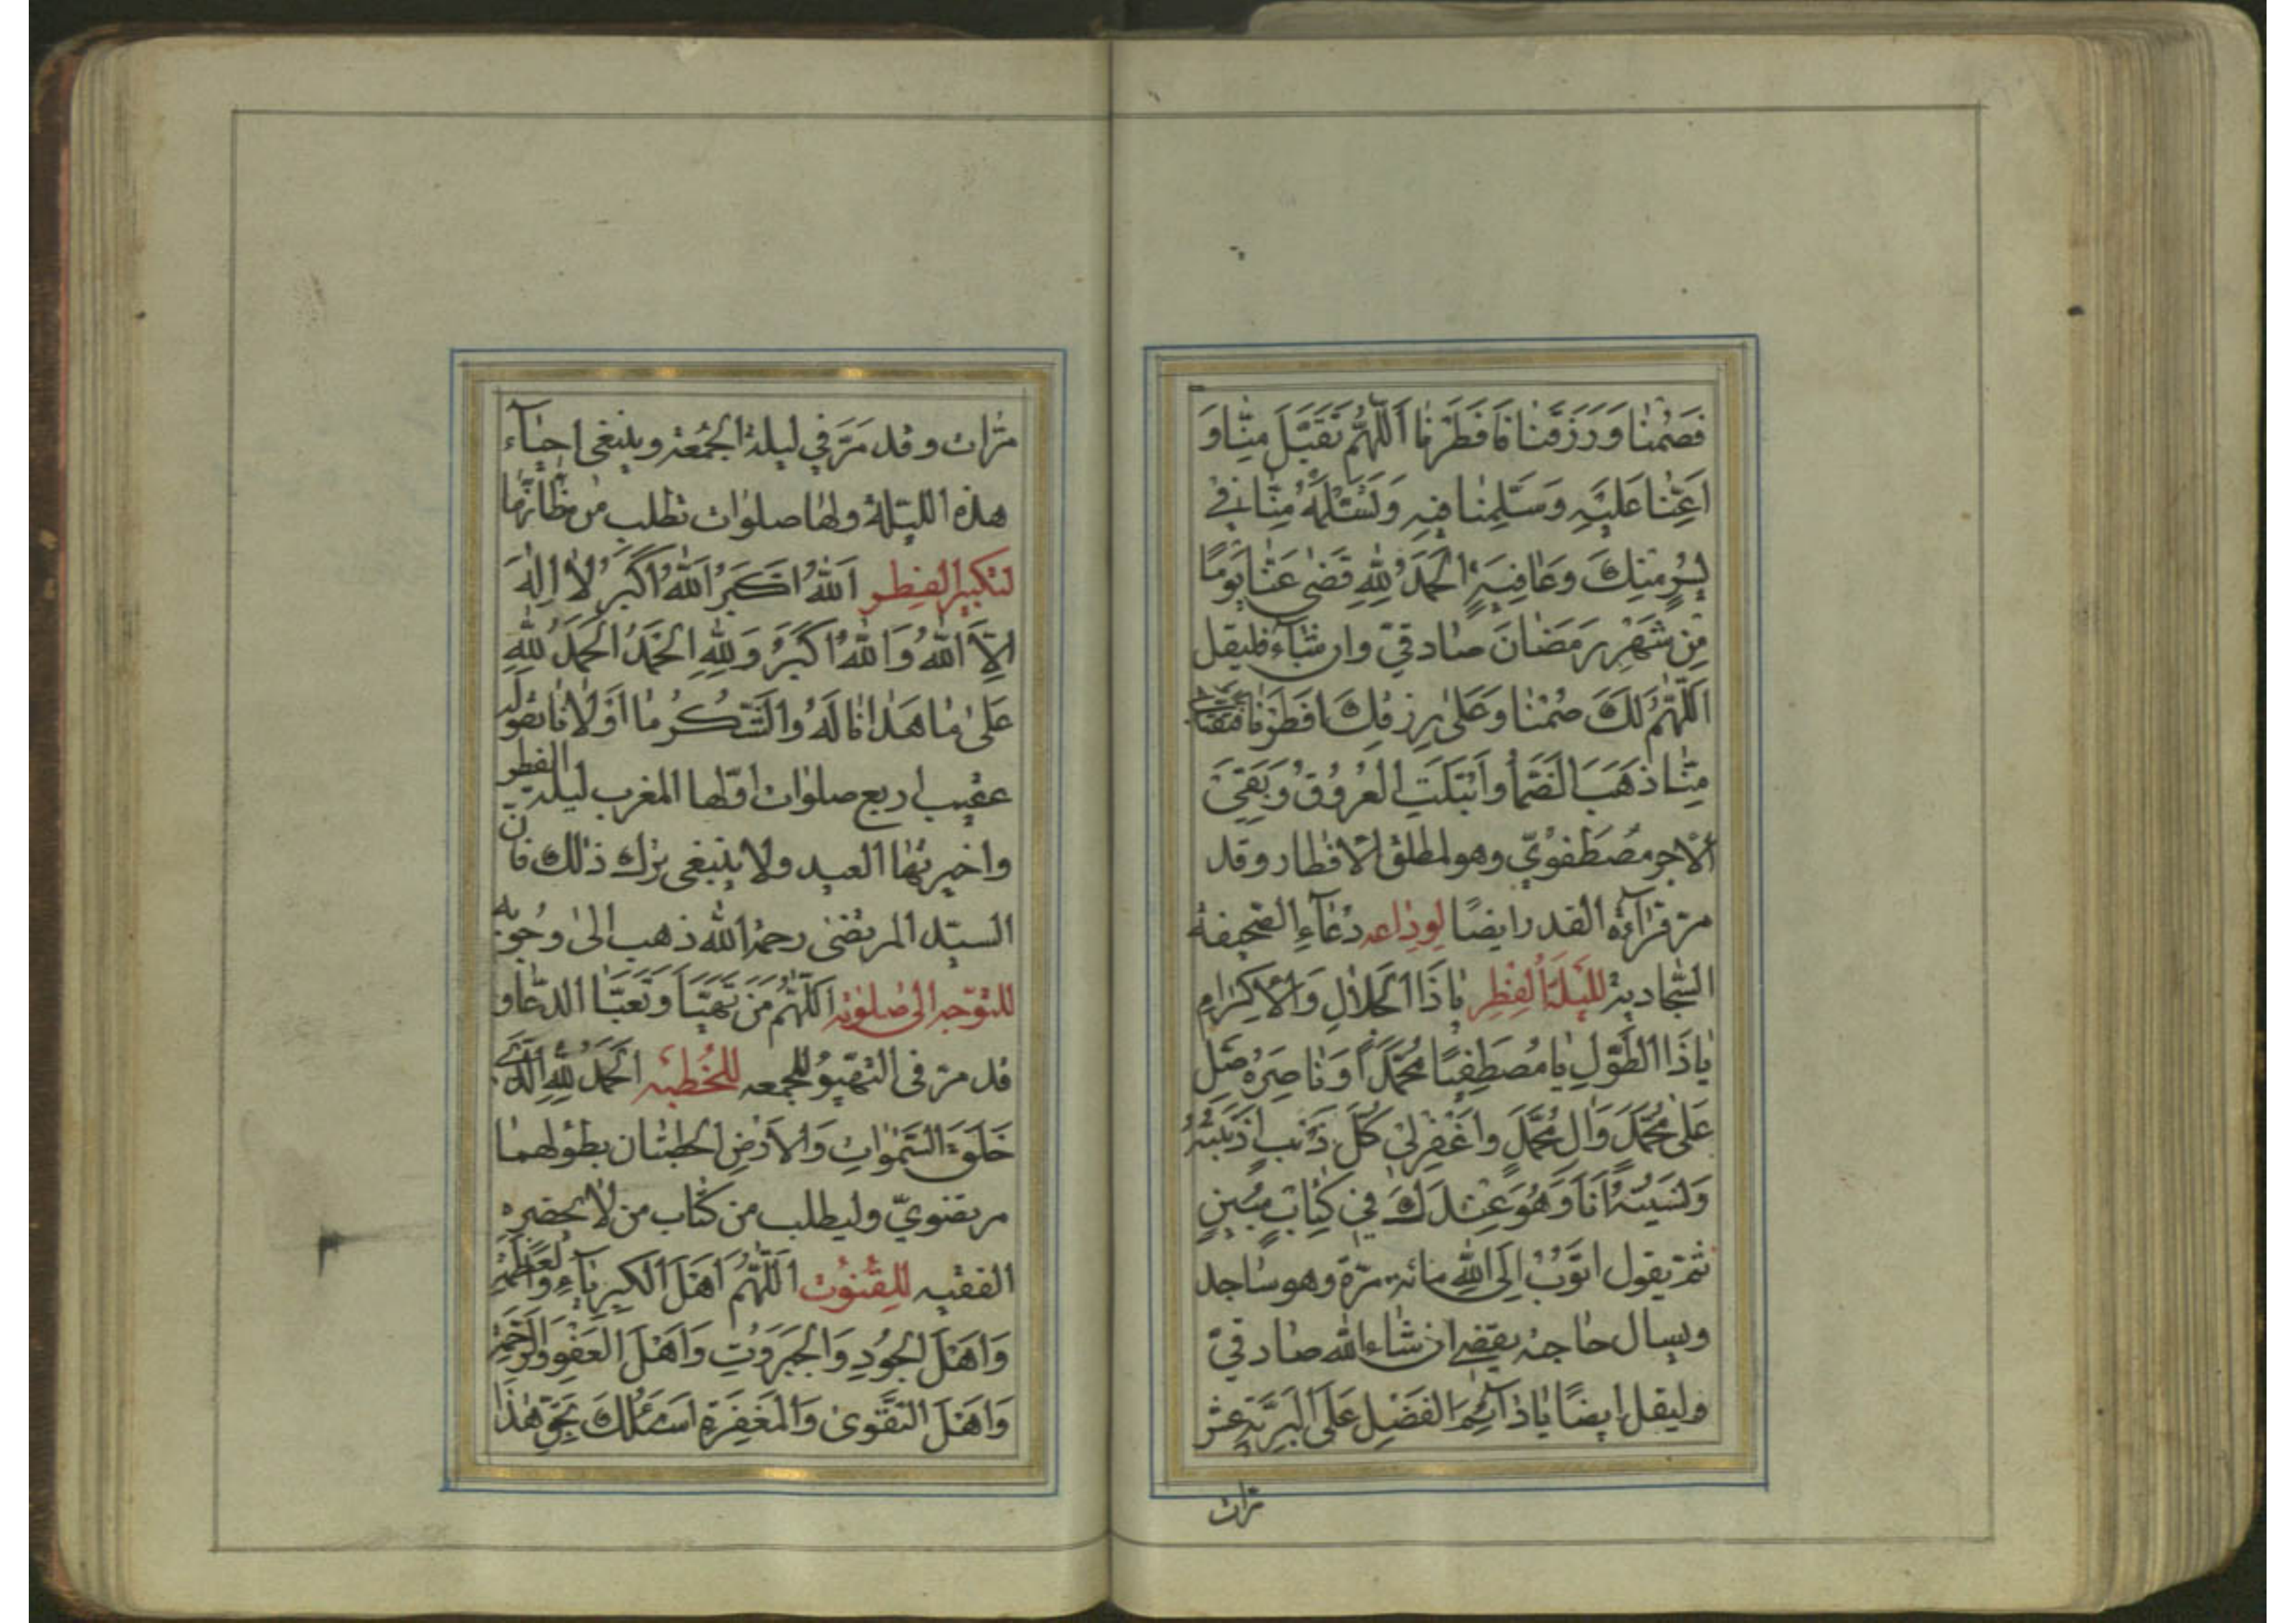 فَصُمْنا وَرَزَقَنا فَاَفْطَرْنا اَللّٰهُمَّ تَقَبَّلْ مِنّا وَ
اَعِنّا عَلَيْهِ وَسَلِّمْنا فيهِ وَتَسَلَّمْهُ مِنّا في
يُسْرٍ مِنْكَ وَعافِيَةٍ اَلْحَمْدُ لِلّٰهِ قَضىٰ عَنّا يَوْمًا
مِنْ شَهْرِ رَمَضانَ صادقيّ وان شآء فليقل
اَللّٰهُمَّ لَكَ صُمْنا وَعَلىٰ رِزْقِكَ اَفْطَرْنا فَتَقَبَّلْهُ
مِنّا ذَهَبَ الضَّمَأُ وابْتَلَّتِ العُرُوقُ وَبَقِيَ
الْاَجر مُصْطَفَوِيّ وهو لمطلق الافطار وقد
مرّ قرآءة القدر ايضًا لوداعه دعآءِ الصّحيفة
السّجاديّة للَيلة الفِطرِ ياذَا الجَلالِ وَالْاِكْرامِ
ياذَا الطَّوْلِ يا مُصْطَفِيًا مُحَمَّدًا وَناصِرَهُ صَلِّ
عَلىٰ مُحَمَّدٍ وَآلِ مُحَمَّدٍ واغْفِرْ لي كُلَّ ذَنْبٍ اَذْنَبْتُهُ
وَنَسيتُهُ اَنَا وَهُوَ عِنْدَكَ في كِتابٍ مُبينٍ
ثمّ يقول اَتُوْبُ اِلَى اللهِ مائة مرّة وهو ساجد
ويسال حاجته يقضي ان شاء الله صادقيّ
وليقل ايضًا ياذآئِمَ الفَضْلِ عَلَى الْبَرِيَّةِ عشر
مرّات
مرّات وقد مَرّ في ليلة الجُمُعة وينبغي احيآء
هذه اللّيلة ولها صلوات تطلب من مظآنّها
لتكبير الفِطر اَللهُ اَكْبَرُ اَللهُ اَكْبَرُ لا اِلٰهَ
اِلاَّ اللهُ وَاللهُ اَكْبَرُ وَلِلّٰهِ الْحَمْدُ الْحَمْدُ لِلّٰهِ
عَلىٰ ما هَدانا لَهُ والشُّكْرُ ما اَوْلانا يقوله
عقيب اربع صلوات اوّلها المغرب ليلة الفطر
واخيرتها العيد ولا ينبغي ترك ذلك فانّ
السيّد المرتضى رحمه الله ذهب الىٰ وجوبه
للتوّجه الى صلوته اَللّٰهُمَّ مَنْ تَهَيَّأَ وَتَعَبَّأَ الدّعاء و
قد مرّ في التهيّؤ للجمعه للخُطبَه اَلْحَمْدُ لِلّٰهِ الَّذي
خَلَقَ السَّمٰواتِ وَالْاَرْضِ الخطبتان بطولهما
مرتضويّ وليطلب من كتاب من لا يحضره
الفقيه للقُنوُت اَللّٰهُمَّ اَهْلَ الْكِبْرِيآءِ وَالْعَظَمَةِ
وَاَهْلَ الجُودِ وَالْجَبَرُوتِ وَاَهْلَ العَفْوِ وَالرَّحْمَةِ
وَاَهْلَ التَّقْوىٰ وَالْمَغْفِرَةِ اَسْئَلُكَ بِحَقِّ هٰذَا